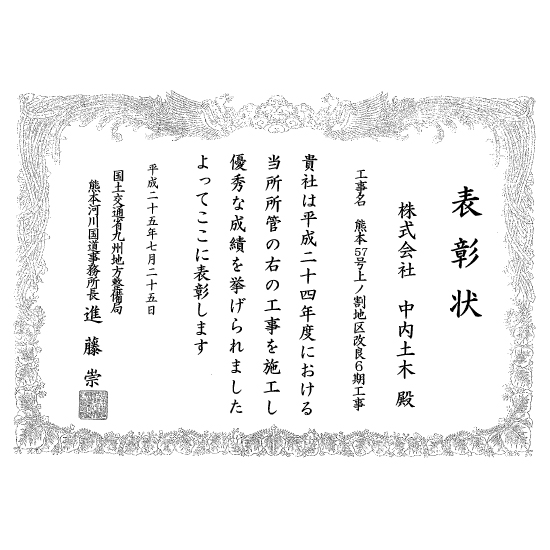 表彰状
株式会社 中内土木 殿
工事名 熊本57号上ノ割地区改良6期工事
貴社は平成二十四年度における
当所所管の右の工事を施工し
優秀な成績を挙げられました
よってここに表彰します
平成二十五年七月二十五日
国土交通省九州地方整備局
熊本河川国道事務所長 進藤崇